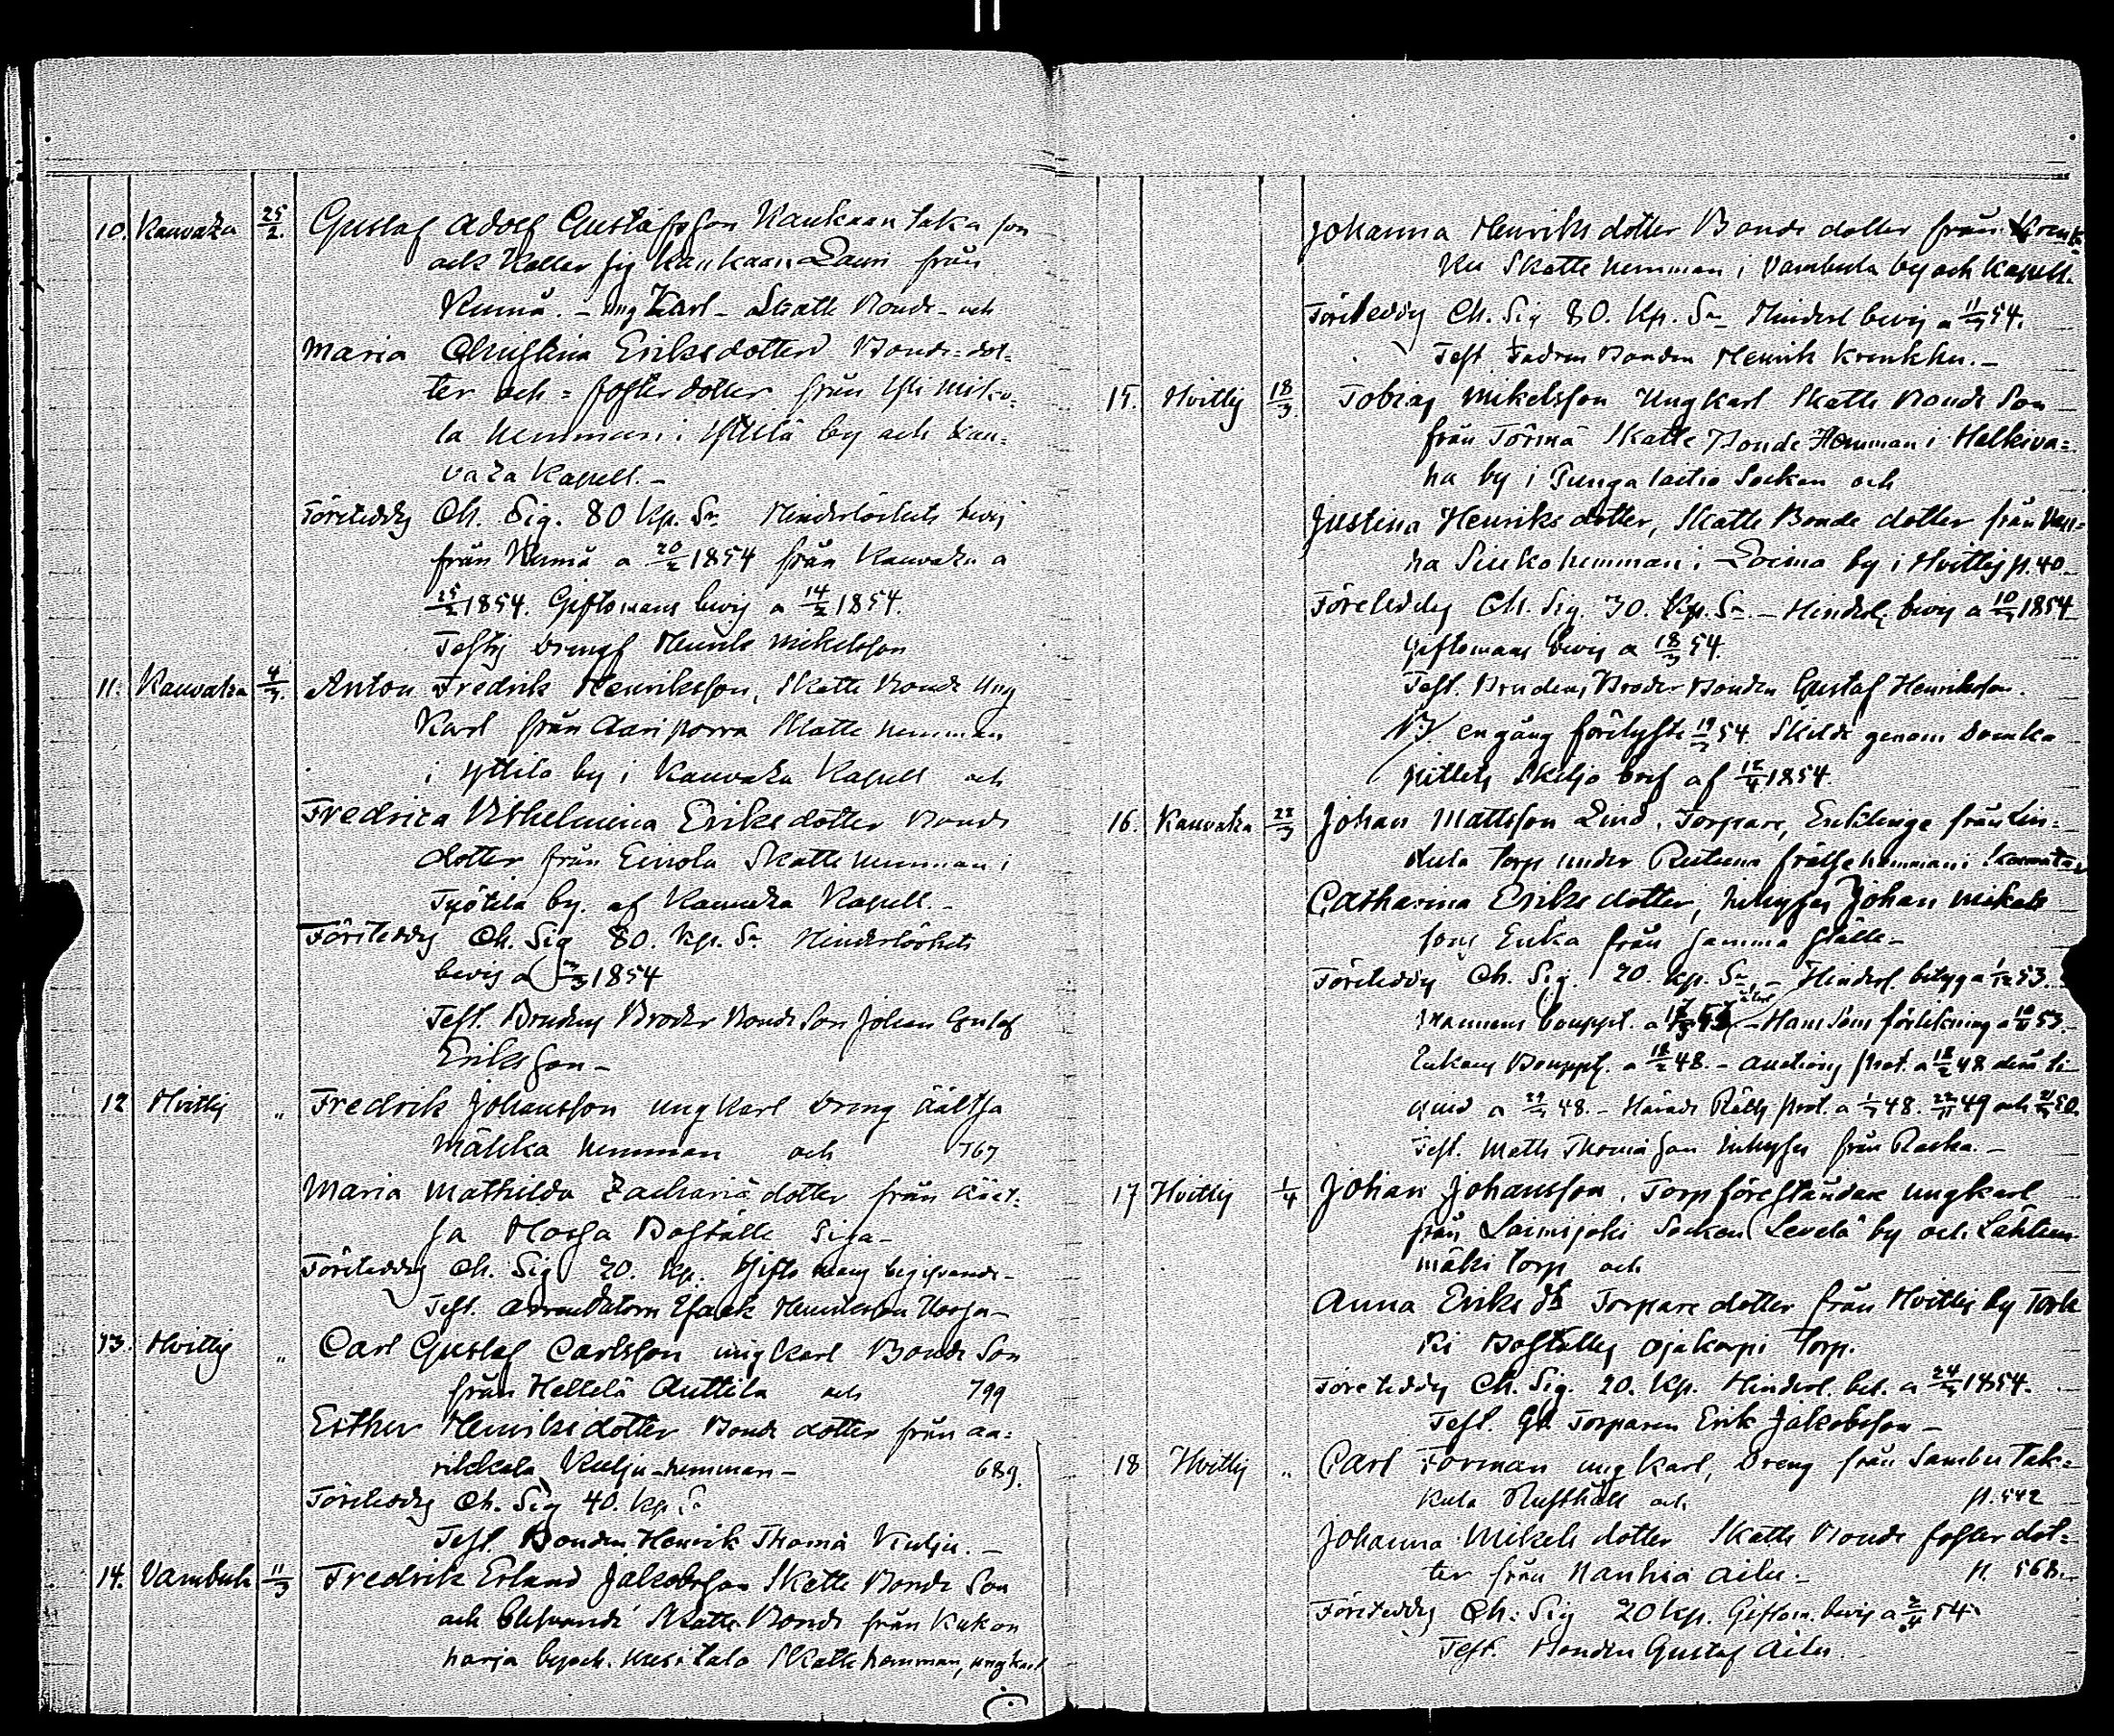 10. Kauvatza 25/2. Gustaf Adolf Gustafsson Kaukaan taka son
och kaller sig Kaukaan Lauri från
Kumå. – ung Karl – Skatte Bonde – och
Maria Christina Eriksdotter Bonde=dot=
ter och = fosterdotter från Yli Miko=
la hemman i Yttilä by och Kau=
vaza Kapell. –
Företeddes Ch. Sig. 80 Kp. Sr Hinderlöshets bevis
från Kumå a 20/2 1854 från Kauvatza a
25/2 1854. Giftomans bevis a 14/2 1854.
Testis Drengs Henrik Mikelsson
11. Kauvatza 4/3. Anton Fredrik Henriksson, Skatte Bonde Ung
Karl från Aariporra Skatte hemman
i Yttilä by i Kauvatza Kapell och
Fredrica Vilhelmina Eriksdotter Bonde
dotter från Einola Skatte hemman i
Työtilä by. af Kauvatza Kapell. –
Företeddes Ch. Sig 80. Kp. Sr Hinderlöshets
bevis a /3 1854
Test. Brudens Broder Bonde Son Johan Gustaf
Eriksson –
12 Hvittis " Fredrik Johansson ung Karl Dreng Äältsa
Mälkka hemman och 767
Maria Mathilda Zachariädotter från Äält=
sa Horsa Boställe Piga –
Företeddes Ch. Sig 20. Kp. Giftomans begifvande –
Test. Arrendatorn Isaak Henriksson Horsa –
13. Hvittis " Carl Gustaf Carlsson ung Karl Bonde Son
från Helletä Anttila och 799
Esther Henriksdotter Bonde dotter från Aa=
rikkala Kulju – hemman – 689.
Företeddes Ch. Sig 40. Kp. Sr
Test. Bonden Henrik Thomä Kulju. –
14. Vambula 11/3 Fredrik Erland Jakobsson Skatte Bonde Son
och blifvande Skatte Bonde från Kukon
harja by och Uusitalo Skatte hemman, ung karl
Johanna Henriksdotter Bonde dotter från Krenk
ku Skatte hemman i Vambula by och Kapell.
Företeddes Ch. Sig 80. Kp. Sr Hinderl bevis a 11/3 54.
Test. Fadren Bonden Henrik Krenkku. –
15. Hvittis 18/3 Tobias Mikelsson Ungkarl Skatte Bonde Son
från Törmä Skatte Bonde Hemman i Halkiva=
ha by i Pungalaitio Socken och
Justina Henriksdotter, Skatte Bonde dotter från Van=
ha Siuko hemman i Loima by i Hvittis p. 40.
Företeddes Ch. Sig. 30. Kp. Sr. – Hinderl. bevis a 10/3 1854
Giftomans bevis a 18/3 54.
Test. Brudens Broder Bonden Gustaf Henriksson.
NB en gång förelyste 19/3 54. Skilde genom Domka
pitlets Skiljo bref af 12/4 1854.
16. Kauvatza 22/3 Johan Mattsson Lind. Torpare, Enklinge från Lin=
dula torp under Rutuna frälsehemman i
Catharina Eriksdotter, Inhyses Johan Mikels
sons Enka från samma ställe –
Företeddes Ch. Sig. 20. Kp. Sr – Hinderl. betyg a 1/12 53.
Mannens bouppt. a – Hans Sons förlikning a 53.
Enkans Bouppt. a 18/2 48. – Auctions prot. a 18/2 48
a 48. – Härads Rätts prot. a 48. 49 och 50.
Test. Matts Thomasson Inhyses från Raska. –
17 Hvittis 1/4 Johan Johansson. Torpföreståndare ungkarl
från Loimijoki Socken Levelä by och Lähteen
mäki torp och
Anna Eriks dr Torpare dotter från Hvittis by Tork
ki Boställes Ojakorpi torp.
Företeddes Ch. Sig. 20. Kp. Hinderl. bet. a 24/3 1854.
Test. Gl. Torparen Erik Jakobsson –
18 Hvittis " Carl Forman ung karl, Dreng från Sambu Tak=
kula Rusthåll och p. 542
Johanna Mikelsdotter Skatte Bonde foster dot=
ter från Nanhia Ailu – p. 568. –
Företeddes Ch. Sig 20 Kp. Giftom. bevis a 2/4 54
Test. Bonden Gustaf Ailu.